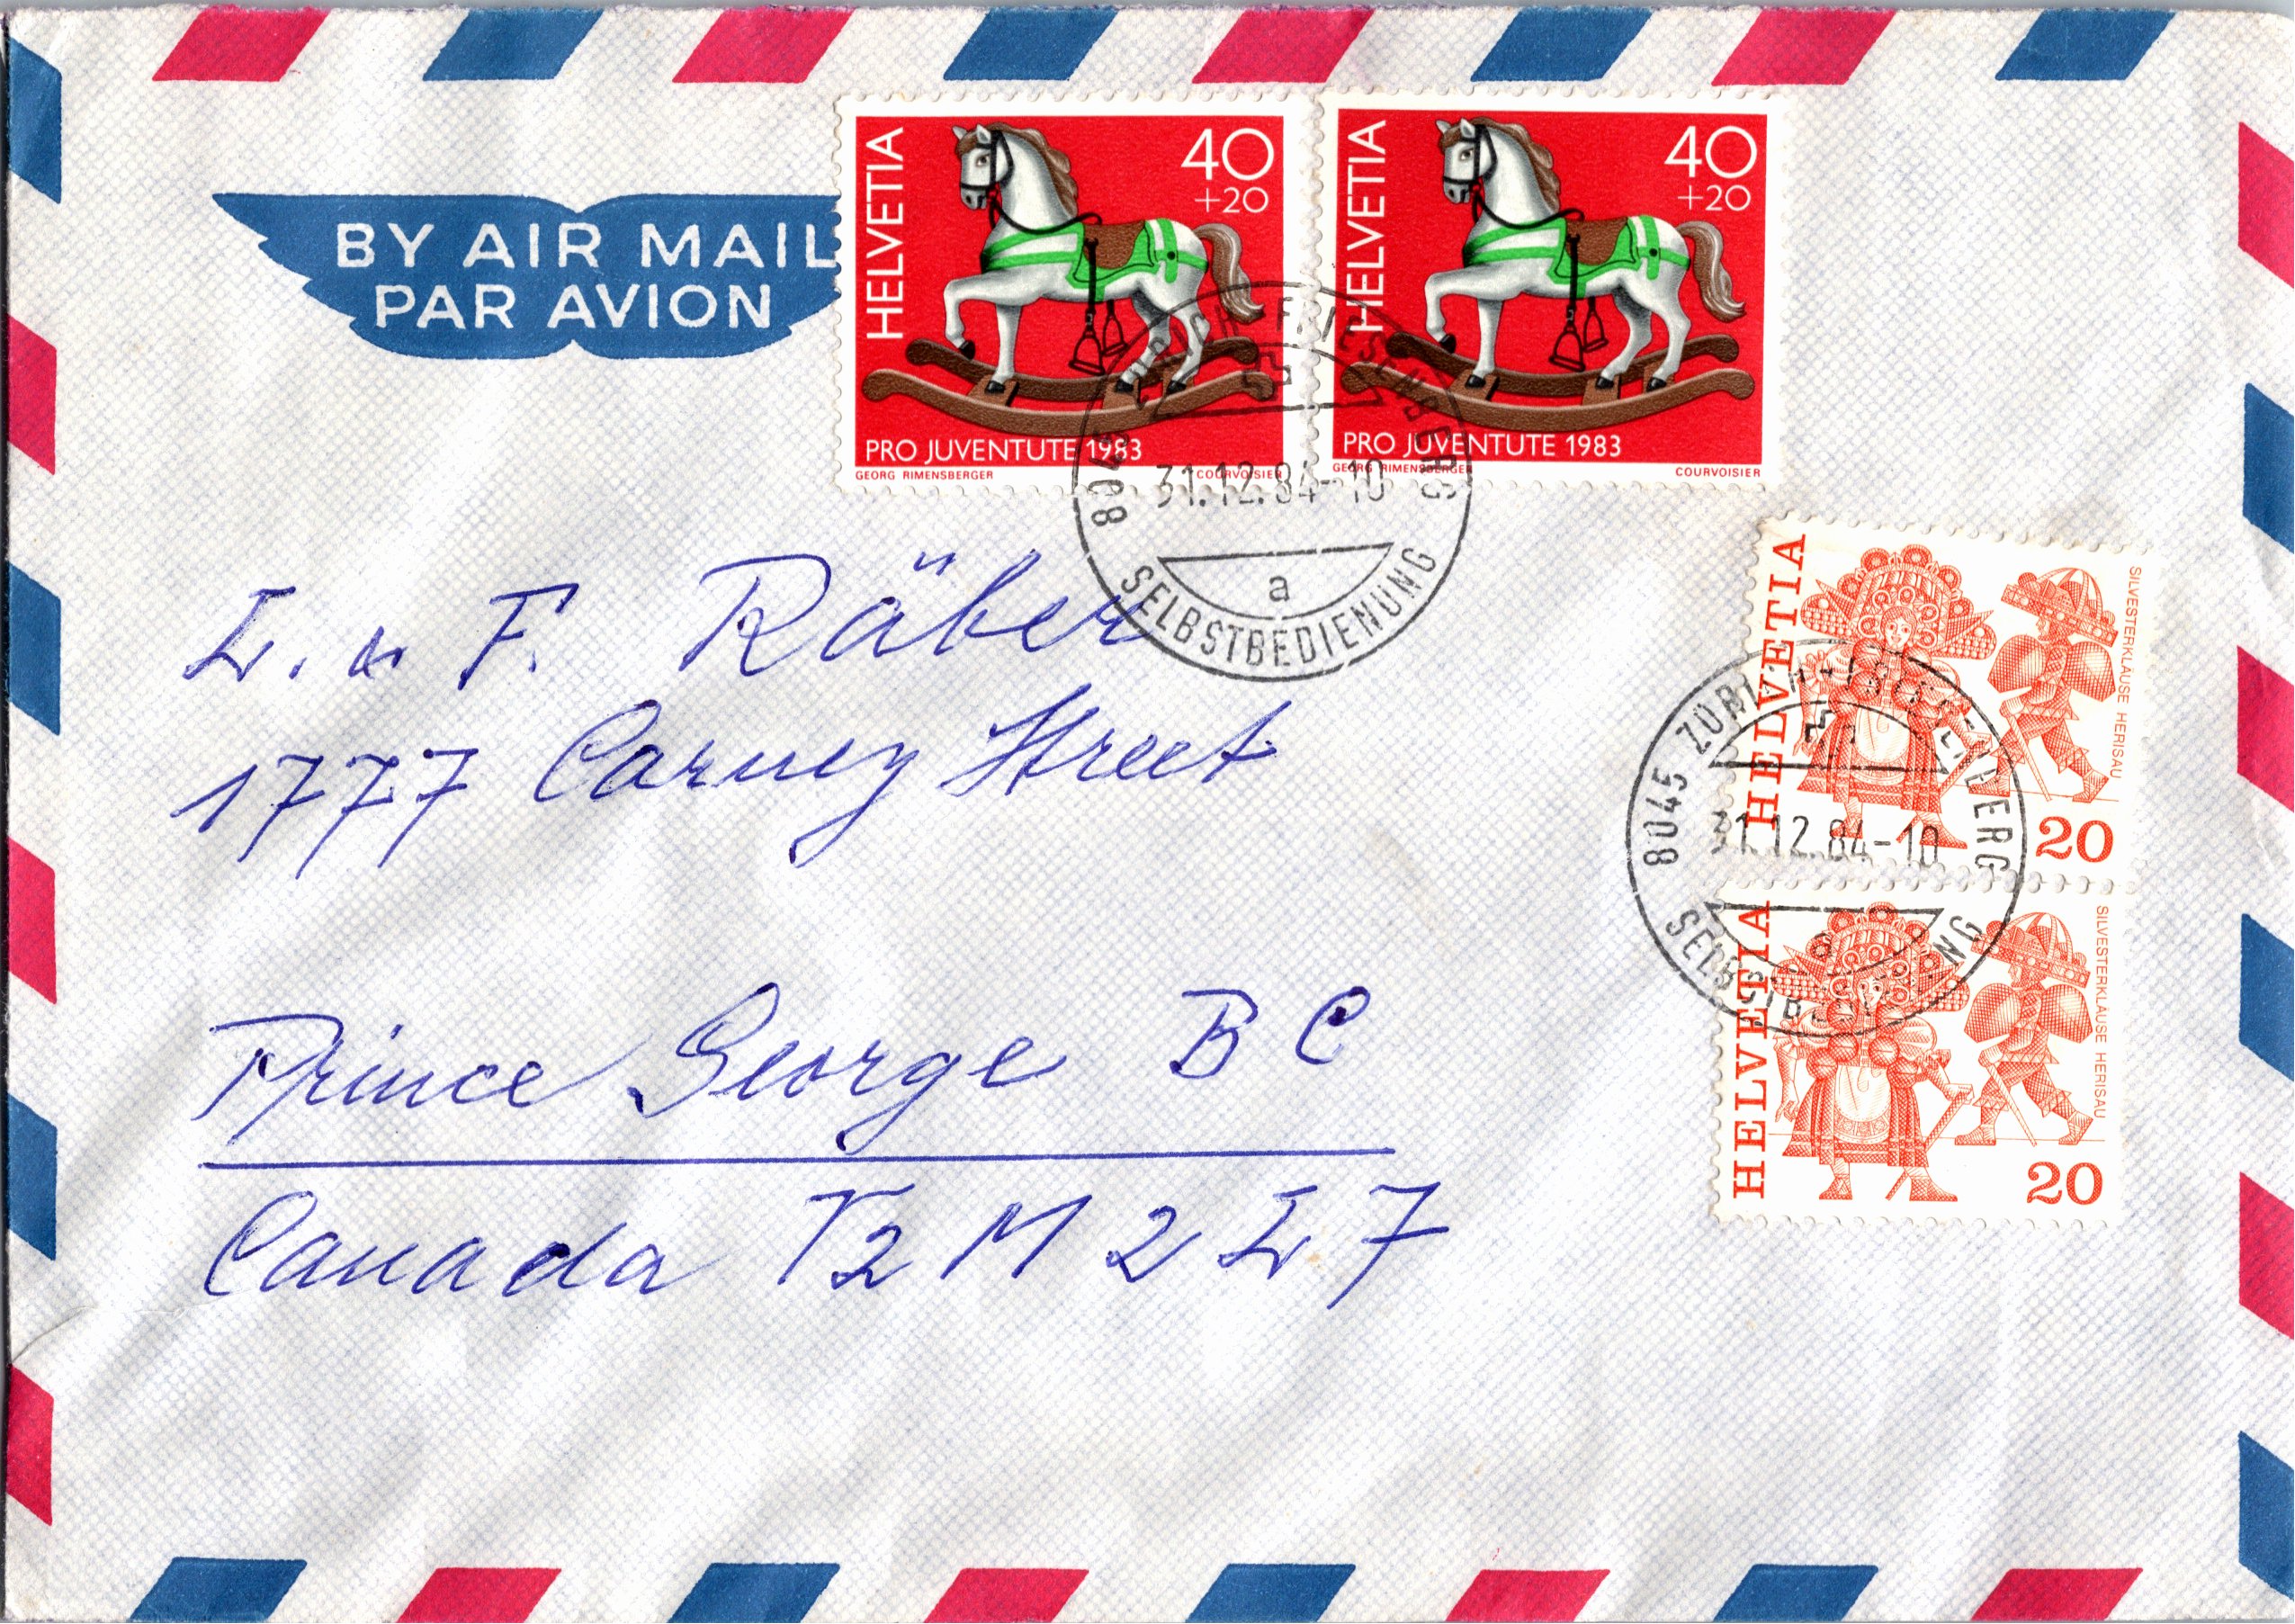 BY AIR MAIL
PAR AVION
HELVETIA
40
+20
PRO JUVENTUTE 1983
GEORG RIMENSBERGER COURVOISIER
HELVETIA
40
+20
PRO JUVENTUTE 1983
GEORG RIMENSBERGER COURVOISIER
8045 ZÜRICH-FRIESENBERG
31.12.84-10
a
SELBSTBEDIENUNG
HELVETIA
SILVESTERKLÄUSE HERISAU
20
8045 ZÜRICH-FRIESENBERG
31.12.84-10
a
SELBSTBEDIENUNG
HELVETIA
SILVESTERKLÄUSE HERISAU
20
L. u F. Räber
1777 Carney Street
Prince George B C
Canada V2 M 2 L 7